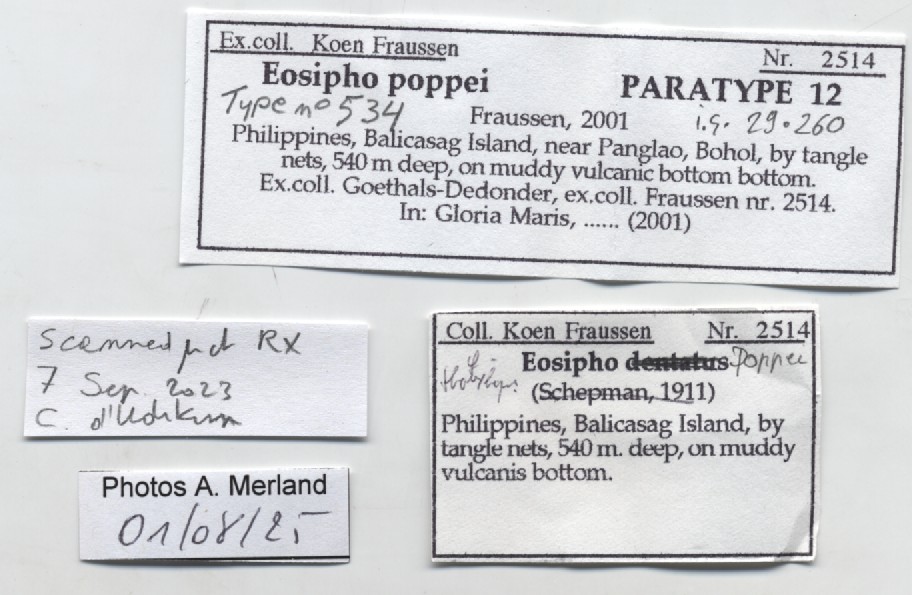 Ex.coll. Koen Fraussen
Nr. 2514
Eosipho poppei PARATYPE 12
Type n° 534
Fraussen, 2001 i.g. 29.260
Philippines, Balicasag Island, near Panglao, Bohol, by tangle
nets, 540 m deep, on muddy vulcanic bottom bottom.
Ex.coll. Goethals-Dedonder, ex.coll. Fraussen nr. 2514.
In: Gloria Maris, ...... (2001)
Scanned RX
7 Sep. 2023
C.
Photos A. Merland
01/08/25
Coll. Koen Fraussen Nr. 2514
Eosipho dentatus poppei
(Schepman, 1911)
Philippines, Balicasag Island, by
tangle nets, 540 m. deep, on muddy
vulcanis bottom.